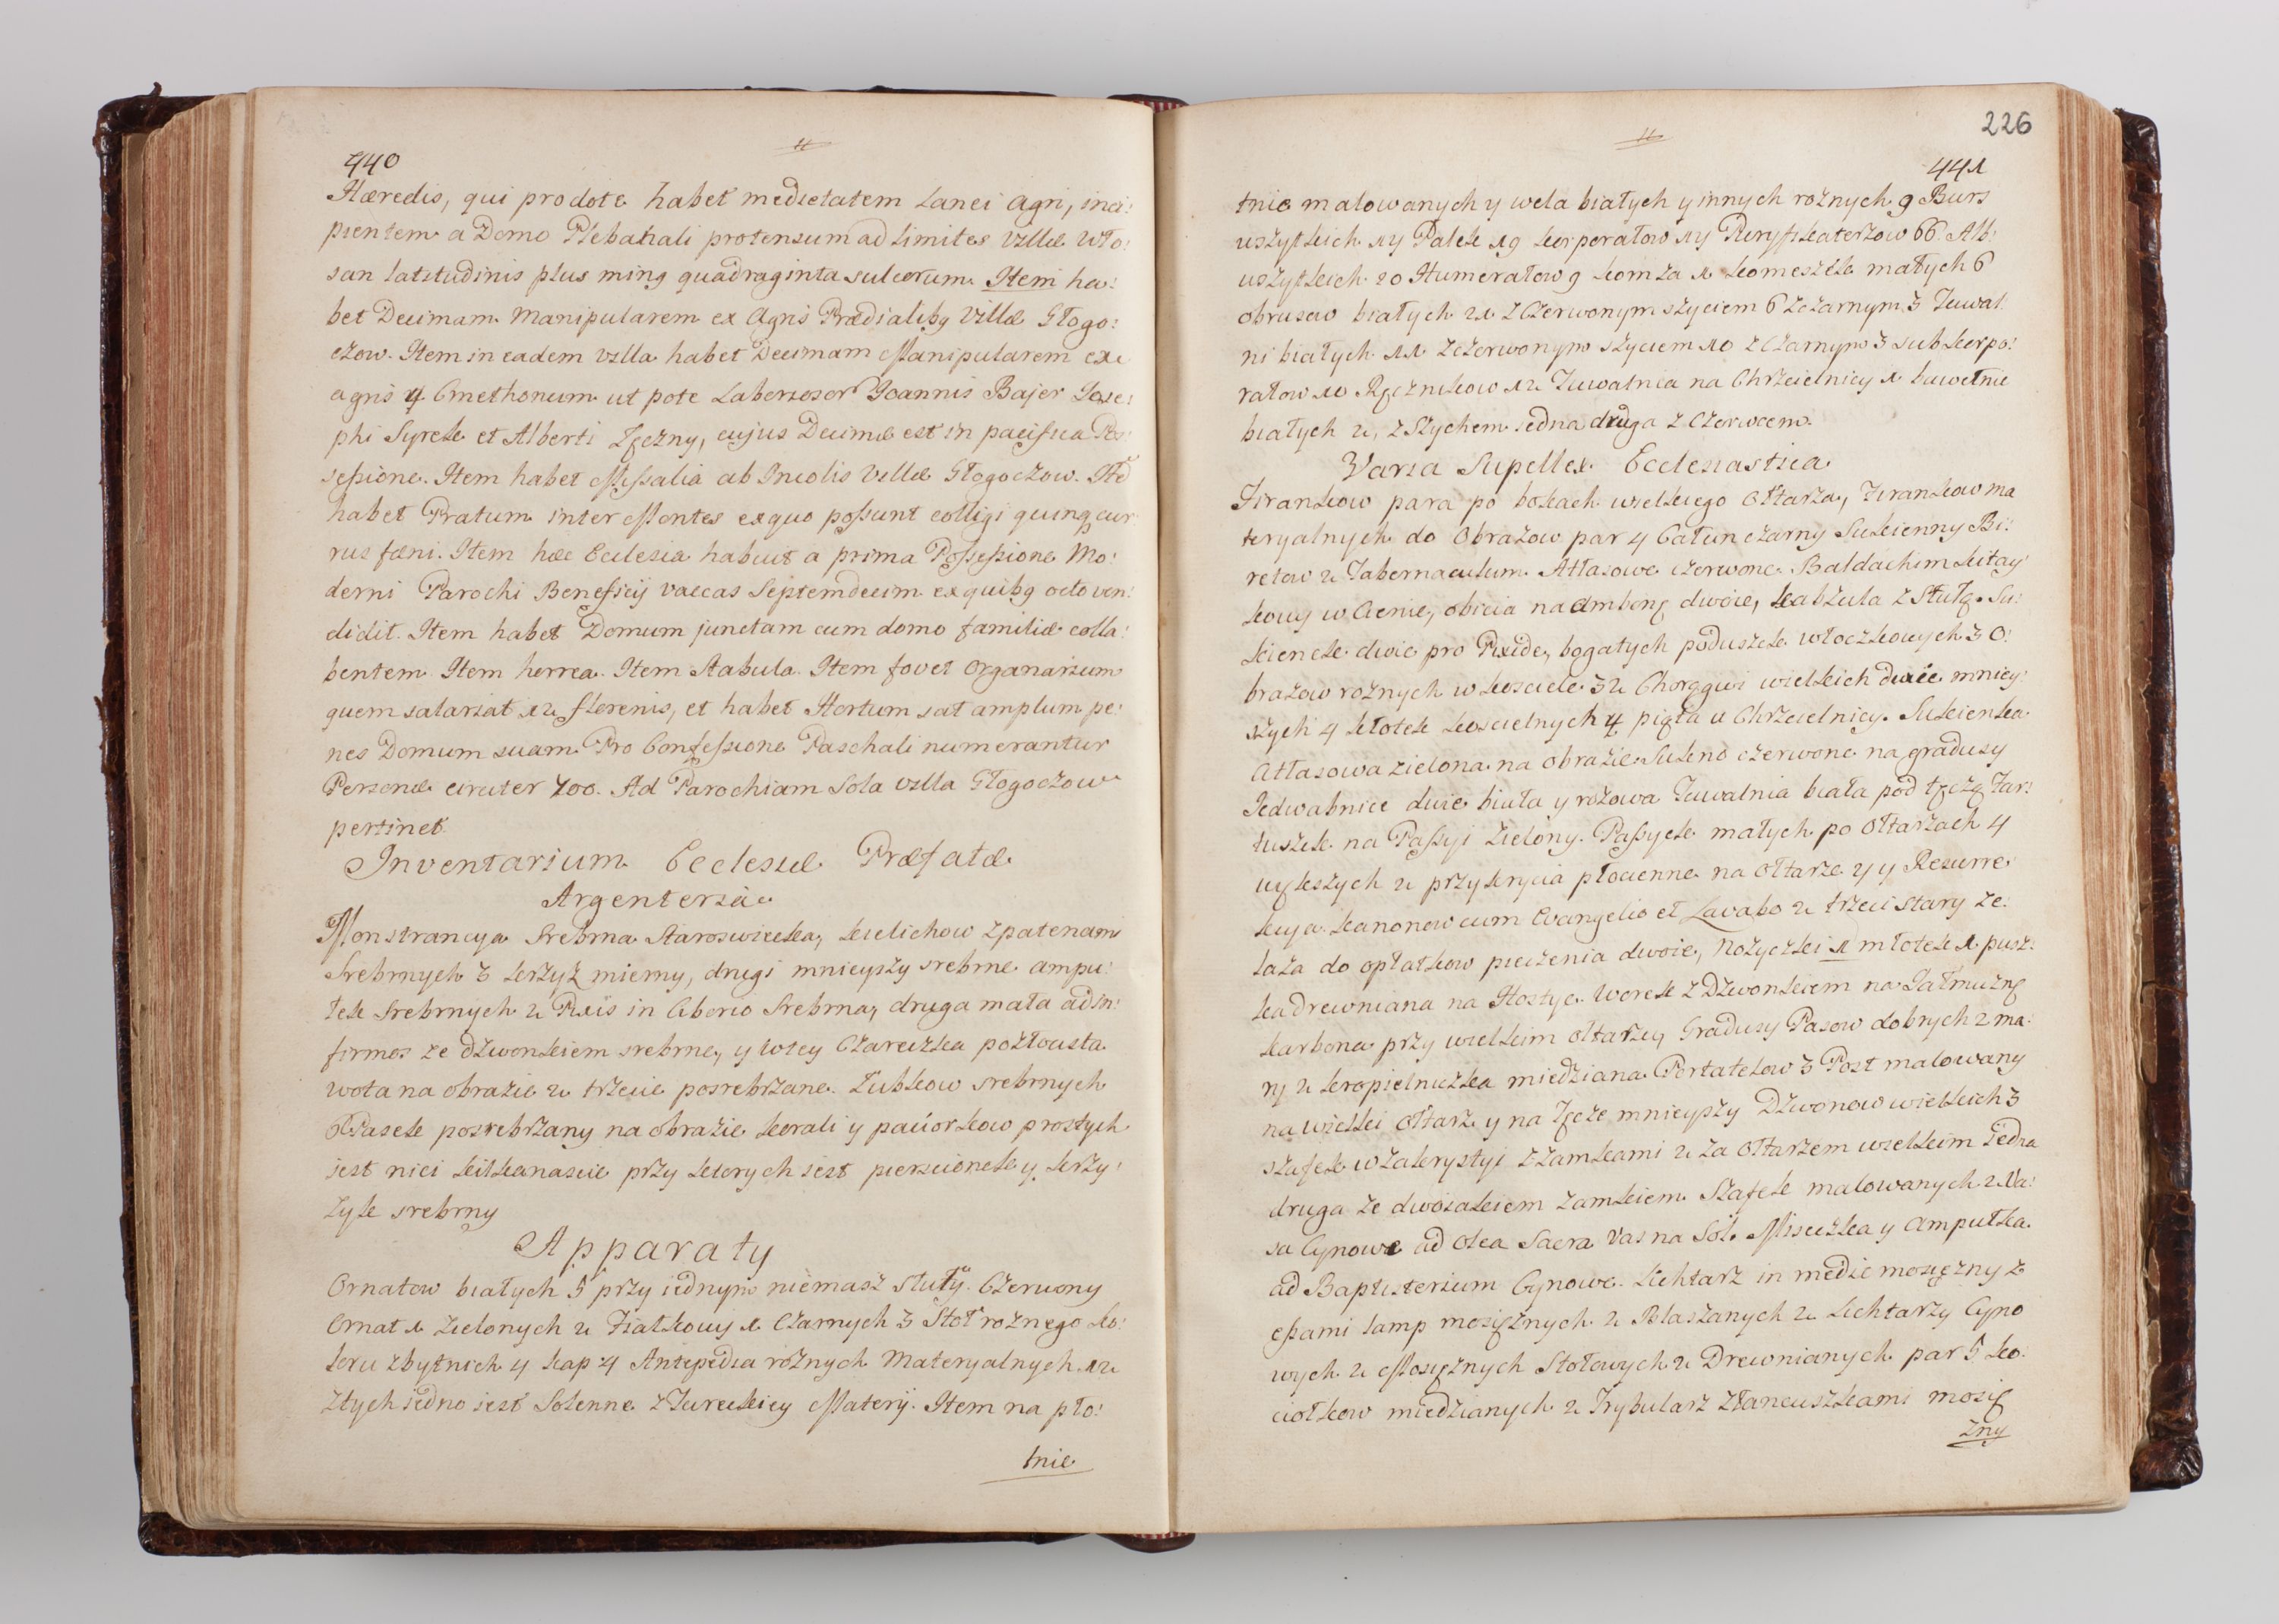 440
Hæredis, qui pro dote habet medietatem Lanei agri, inci:
pientem a Domo Plebanali protensum ad limites Villæ Wło:
san latitudinis plus minq quadraginta sulcorum. Item ha:
bet Decimam Manipularem ex Agris Prædialibq Villæ Głogo:
czow. Item in eadem villa habet Decimam Manipularem ex
agris 4 Cmethonum ut pote Joannis Bajer Jose:
phi Syrek et Alberti Tęczny, cujus Decimæ est in pacifica Pos:
seßione. Item habet Missalia ab Incolis Villæ Głogoczow. Itē
habet Pratum inter Montes ex quo poßunt colligi quinq cur
rus fæni. Item hæc Ecclesia habuit a prima Poßeßione Mo:
derni Parochi Beneficij vaccas Septemdecim ex quibq octo ven:
didit. Item habet Domum junctam cum domo familiæ colla:
bentem Item horrea. Item Stabula. Item fovet Organarium
quem salariat 12 florenis, et habet Hortum sat amplum pe:
nes Domum suam. Pro Confeßione Paschali numerantur
Personæ circiter 700. Ad Parochiam Sola villa Głogoczow
pertinet.
Inventarium Ecclesiæ Præfatæ
Argenteria
Monstrancya Srebrna Staroswiecka, kielichow z patenami
Srebrnych 3 krzyż mierny, drugi mnieyszy srebrne ampu:
łek Srebrnych 2 Pixis in Ciborio Srebrna, druga mała ad in:
firmos ze dzwonkiem srebrne, y w tey Czareczka pozłocista
wota na obrazie 2 trzecie posrebrzane. Ząbkow srebrnych
Pasek posrebrzany na obrazie korali y paciorkow prostych
jest nici kilkanascie przy ktorych iest pierscionek y krzy:
żyk srebrny
Apparaty
Ornatow białych 5 przy iednym niemasz stuły. Czerwony
Ornat 1 zielonych 2 Fiałkowy 1 Czarnych 3 Stoł roznego ko:
loru zbytnich 4 kap 4 Antepedia rożnych Materyalnych 12
z tych iedno iest Solenne z Tureckiey Materij. Item na płó:
tnie
226
441
tnie malowanych y wela białych y innych rożnych 9 Burs
wszytkich 14 Palek 19 korporałow 14 Puryfikaterzow 66 Alb:
wszytkich 20 Humerałow 9 komża 1 komeszek małych 6
obrusow białych 21 z Czerwonym szyciem 6 z czarnym 3 Tuwal
ni białych 11 z czerwonym szyciem 10 z Czarnym 3 subkorpo:
rałow 10 Ręcznikow 12 Tuwalnia na Chrzcielnicy 1 bawełnic
białych 2, z Sztychem iedna druga z Czerwcem.
Varia Supellex Ecclesiastica
Firankow para po bokach wielkiego Ołtarza, Firankow ma
teryalnych do Obrazow par 4 Całun czarny Sukienny Bi:
retow 2 Tabernaculum Atłasowe czerwone. Baldachim kitay
kowy w Cienie, obicia na ambonę dwoie, kabzuła z Stułą. Su:
kienek dwie pro Pixide, bogatych poduszek włoczkowych 3 O:
brazow rożnych w kosciele 32 Chorągwi wielkich dwie mniey:
szych 4 kłotek koscielnych 4 piąta u Chrzcielnicy. Sukienka
Atłasowa zielona na obrazie. Sukno czerwone na gradusy
Jedwabnice dwie biała y rożowa Tuwalnia biała pod tęczą Far:
tuszek na Paßyi zielony. Paßyek małych po Ołtarzach 4
większych 2 przykrycia płocienne na Ołtarze 4 y Resurre:
kcya kanonow cum Evangelio et Lavabo 2 trzeci stary że:
laza do opłatkow pieczenia dwoie, Nożyczki 1 młotek 1 pusz:
ka drewniana na Hostye. Worek z Dzwonkiem na Jałmużnę
karbona przy wielkim ołtarzu, Gradusy Pasow dobrych 2 ma:
ry 2 kropielniczka miedziana. Portatelow 3 Post malowany
na wielki Ołtarz y na Tęcze mnieyszy Dzwonow wielkich 3
szafek w zakrystyi z zamkami 2 za Ołtarzem wielkim Jedna
druga ze dwoiakiem zamkiem. Szafek malowanych 2 Va:
sa Cynowe ad Olea Sacra Vas na Sól. Miseczka y Ampułka
ad Baptisterium Cynowe. Lichtarz in medio mosiężny z
eßami lamp mosiężnych 2 Blaszanych 2 Lichtarzy Cyno
wych 2 Mosiężnych Stołowych 2 Drewnianych par 5 ko:
ciołkow miedzianych 2 Trybularz z łancuszkami mosię
żny